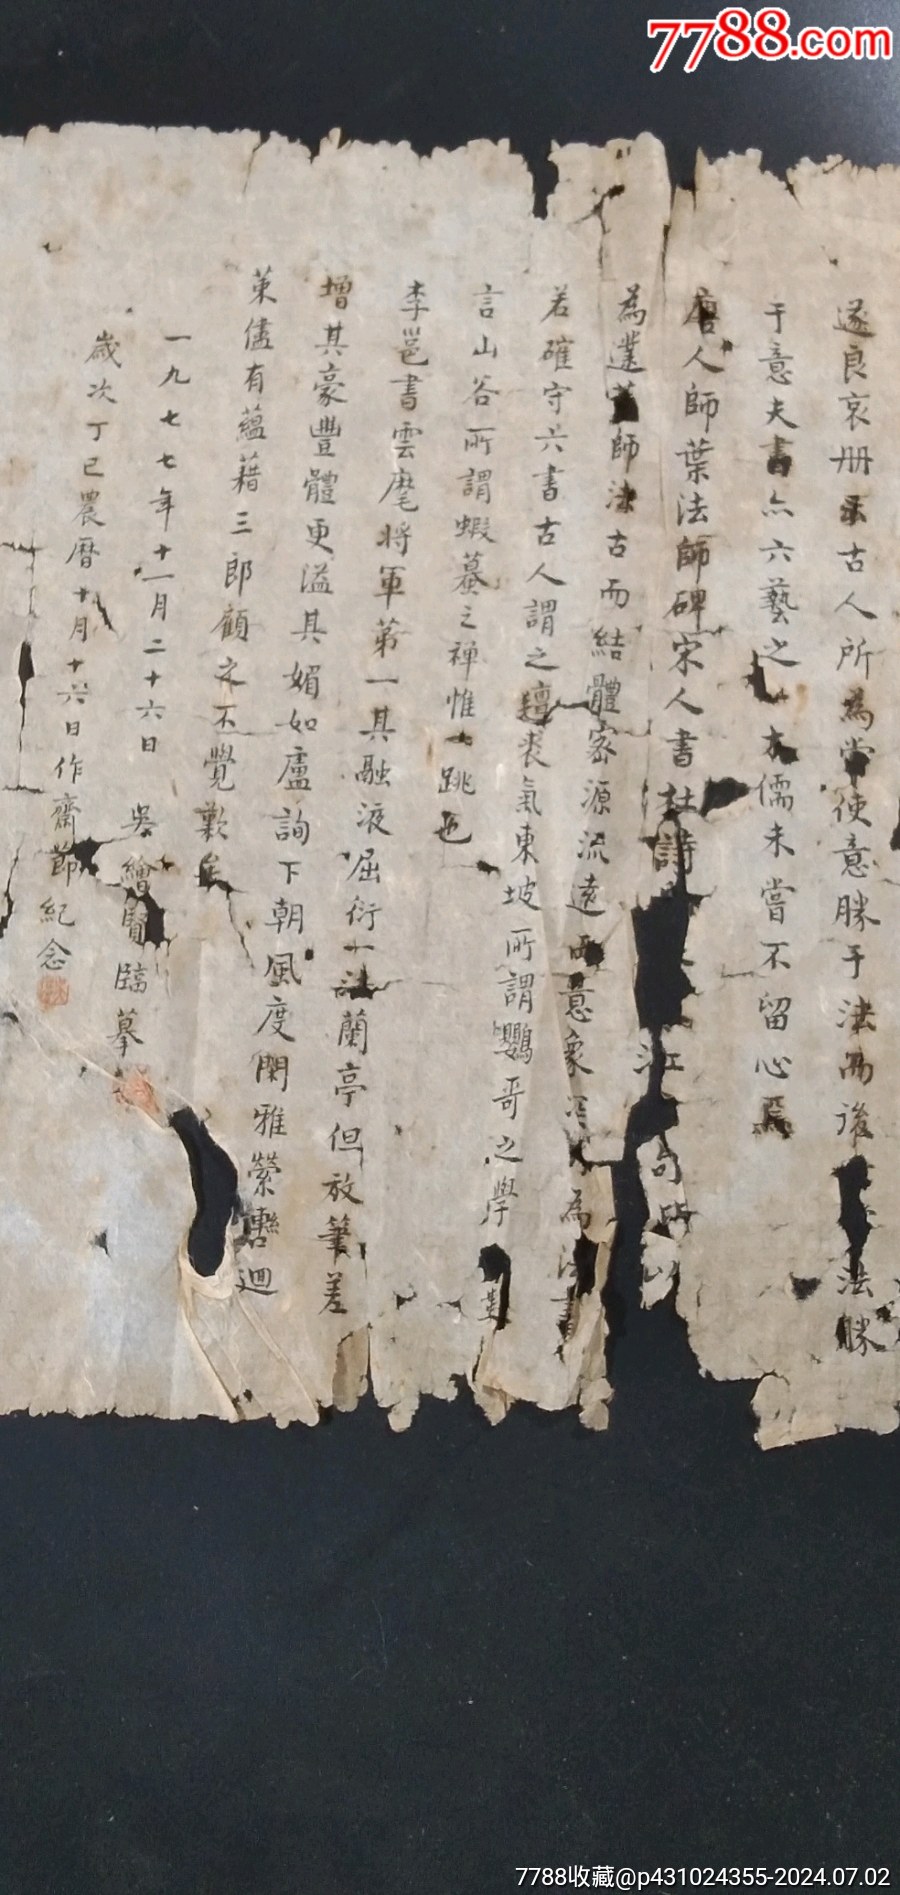 7788.com
遂良哀册古人所為當使意勝于法而後法勝
于意夫書亦六藝之一大儒未嘗不留心焉
唐人師葉法師碑宋人書杜詩江句所以
為叢師法古而結體密源流遠而意象為法書
若確守六書古人謂之氊裘氣東坡所謂鸚哥之學
言山谷所謂蝦蟇之禅惟一跳也
李邕書雲麾將軍苐一其融液屈衍一法蘭亭但放筆差
增其豪豐體更溢其媚如盧詢下朝風度閑雅縈轡迴
策儘有蘊藉三郎顧之不覺歎
一九七七年十一月二十六日 吳繪賢臨摹
歲次丁巳農曆十月十六日作齋節紀念
7788收藏@p431024355-2024.07.02